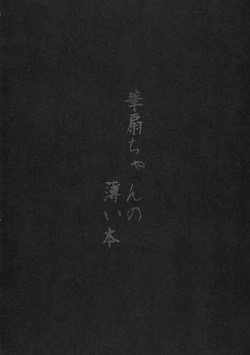 華扇ちゃんの
薄い本